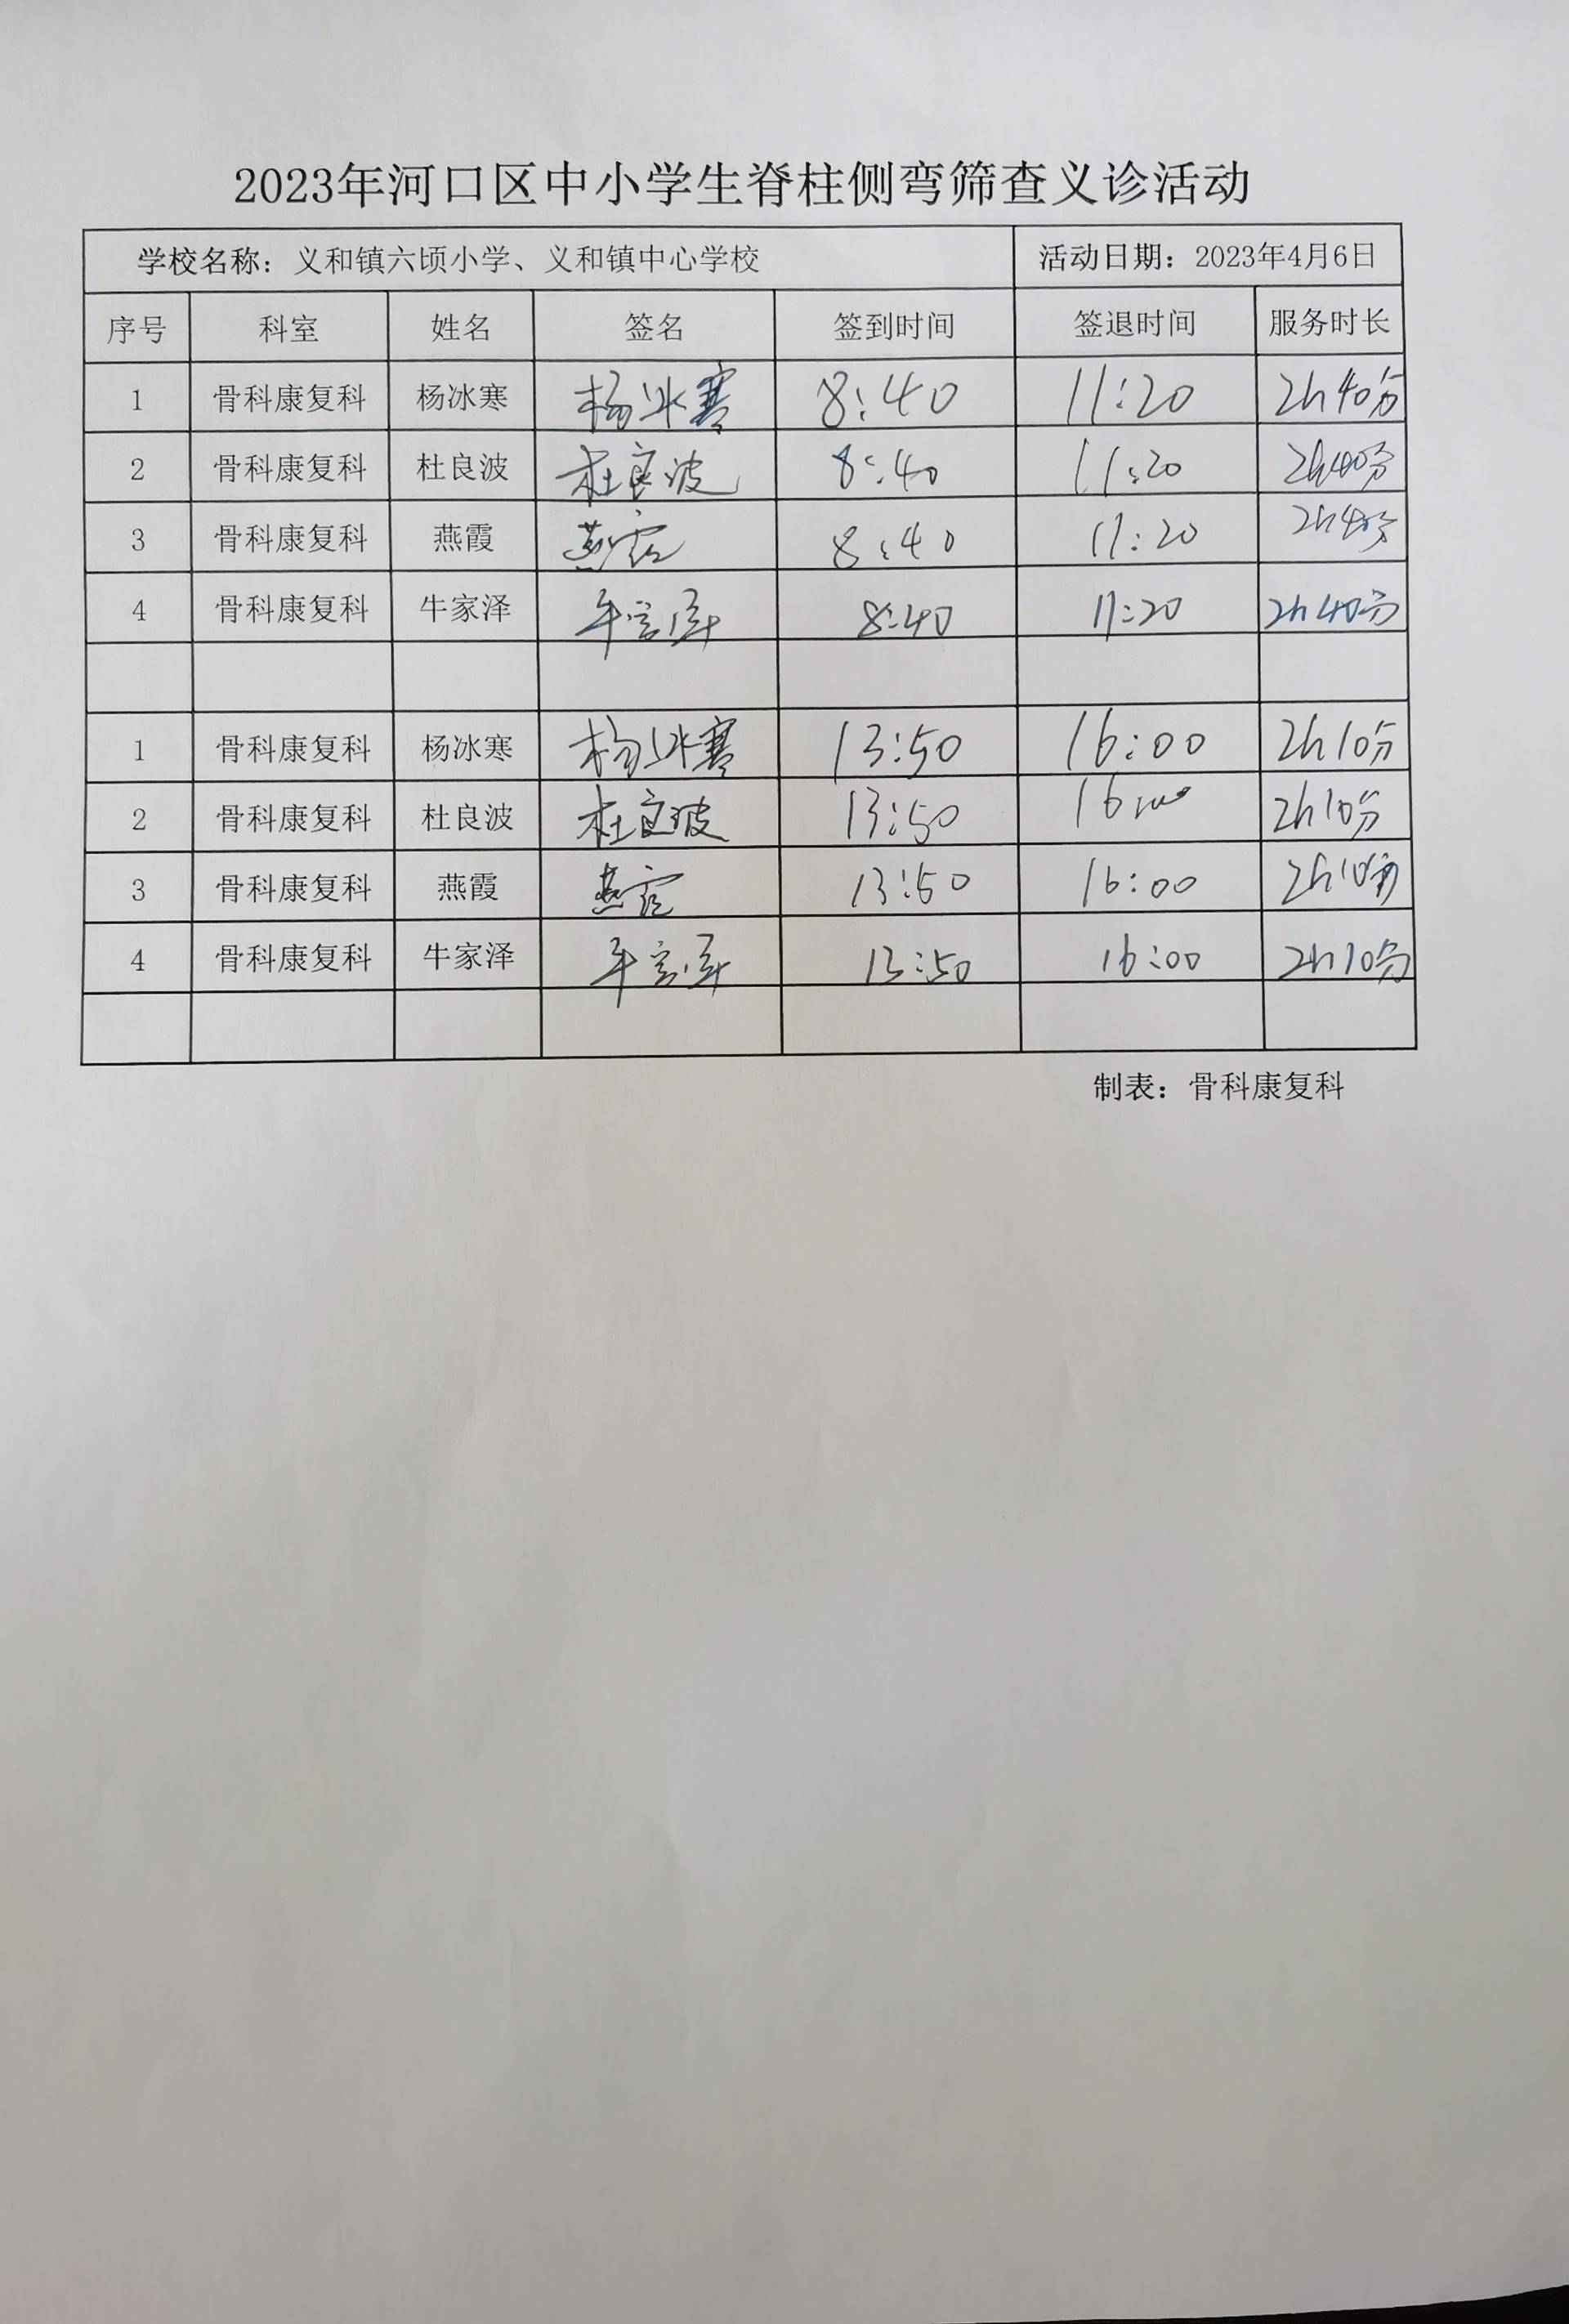 2023年河口区中小学生脊柱侧弯筛查义诊活动
学校名称：义和镇六顷小学、义和镇中心学校 活动日期：2023年4月6日
序号 科室 姓名 签名 签到时间 签退时间 服务时长
1 骨科康复科 杨冰寒 杨冰寒 8:40 11:20 2h40分
2 骨科康复科 杜良波 杜良波 8:40 11:20 2h40分
3 骨科康复科 燕霞 燕霞 8:40 11:20 2h40分
4 骨科康复科 牛家泽 牛家泽 8:40 11:20 2h40分
1 骨科康复科 杨冰寒 杨冰寒 13:50 16:00 2h10分
2 骨科康复科 杜良波 杜良波 13:50 16:00 2h10分
3 骨科康复科 燕霞 燕霞 13:50 16:00 2h10分
4 骨科康复科 牛家泽 牛家泽 13:50 16:00 2h10分
制表：骨科康复科